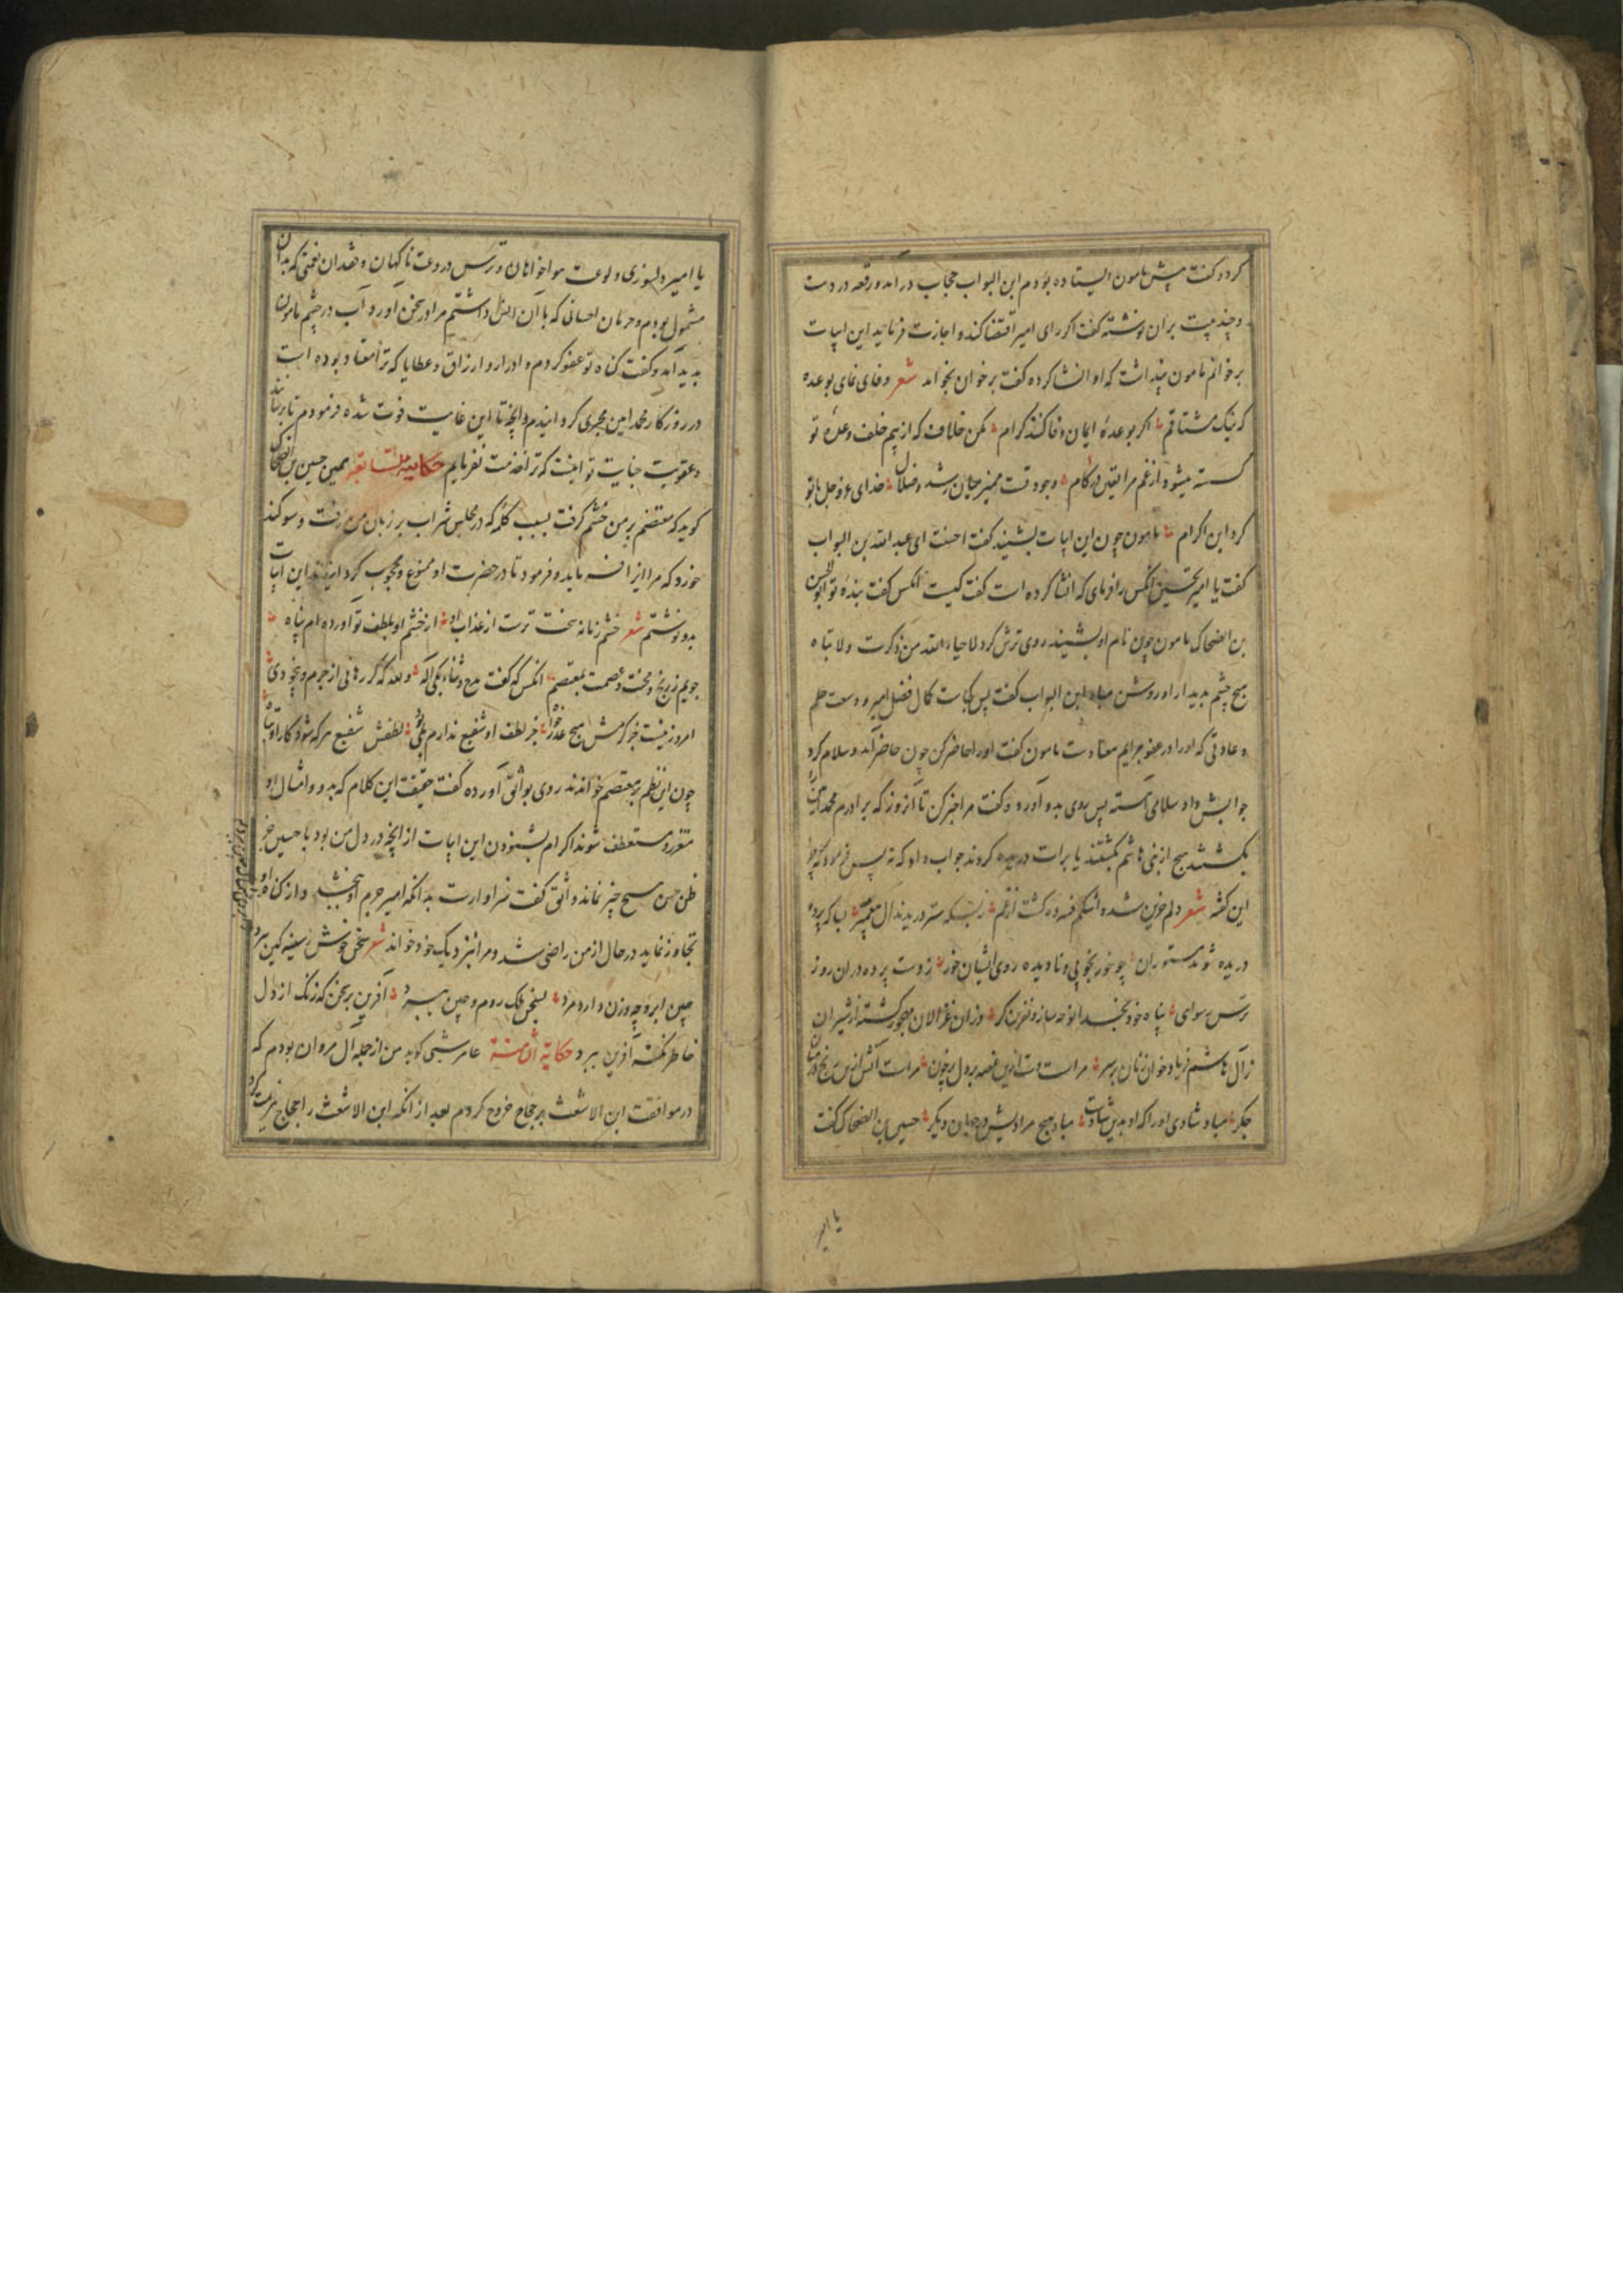 کرد و کفت پیش مامون ایستاده بودم ابن البواب حجاب در آمد و رقعه در دست
و چند بیت بران نوشته کفت اکر رای امیر اقتضا کند و اجازت فرماید این ابیات
برخوانم مامون پنداشت که او انشا کرده کفت برخوان بخواند شعر وفای نمای بوعده
که نیک مشتاقم اکر بوعدهٔ ایمان وفا کنند کرام مکن خلاف که از بیم خلف وعدهٔ تو
کسسته میشود از غم مرا وجود تست ممیز میان رشد و ضلال خدای عز و جل با تو
کرد این اکرام مامون چون این ابیات بشنید کفت احسنت ای عبد الله بن البواب
کفت یا امیر تحسین انکس را فرمای که انشا کرده است کفت کیست انکس کفت بندهٔ تو ابو الحسن
بن الضحاک مامون چون نام او بشنید روی ترش کرد لا حیاء الله من ذکرت ولا بیاه
هیچ چشم بدیدار او روشن مباد ابن البواب کفت پس کجاست کمال فضل امیر و وسعت حلم
و عادتی که او را در عفو جرایم معتادست مامون کفت او را حاضر کن چون حاضر آمد و سلام کرد
جوابش داد سلامی آهسته پس روی بدو آورد و کفت مرا خبر کن تا آنروز که برادرم محمد امین را
بکشتند هیچ از بنی هاشم بکشتند یا برات دریده کردند جواب داد که نه پس فرمود که چرا
این کفته شعر دلم خون شده اشکم فسرده کشت از غم ز بسکه ستر دریدند آل پیغمبر
دریده شوند مستوران چو خور بخوبی و نادیده روی ایشان خور ز دست پرده دران روز
ترس رسوای پناه خود
زال هاشم فریاد خوان زنان برسر مراست دست ازین غصه بر دل پر خون مراست آتش ازین رنج در میان
جکر مباد شادی او را که او بدین شادست مباد هیچ مرادیش در جهان دیکر حسین بن الضحاک کفت
یا امیر
یا امیر دلسوزی و لوعت هواخواهان و ترس در وقت ناکهان و فقدان نعمتی که بدان
مشمول بودم و حرمان احسانی که با آن انس داشتم مرا در سخن آورد آب در چشم مامون
بدید آمد و کفت کناه تو عفو کردم و ادرار و ارزاق و عطایا که ترا معتاد بوده است
در روزکار محمد امین مجری کردانیدم و آنچه تا این غایت فوت شده فرمودم تا برسانند
و عقوبت جنایت تو اینست که ترا خدمت نفرمایم حکایة السابعة همین حسین بن الضحاک
کوید که معتصم بر من خشم کرفت بسبب کلمهٔ که در مجلس شراب بر زبان من رفت و سوکند
خورد که مرا و فرمود تا در حضرت او ممنوع و محجوب کردانیدند این ابیات
بدو نوشتم شعر خشم زمانه سخت ترست از عذاب او از خشم او بلطف تو آورده ام پناه
جویم ز رنج و محنت و عصمت بمعتصم انکس که کفت مدح و ثناء یکی اله والله که کر رهانی از جرم و بیخودی
امروز نیست جز کرمش هیچ عذر خواه جز لطف او شفیع ندارم بلی لطفش شفیع هر که شود کار او
چون این نظم بر معتصم خواندند روی بواثق آورده کفت حقیقت این کلام که بدو و امثال او
مغرور و مستعطف شوند اکرام بشنودن این ابیات از آنچه در دل من بود با حسین جز
ظن حسن هیچ چیز نماند واثق کفت سزاوارست بدانکه امیر جرم او ببخشد و از کناه او
تجاوز نماید در حال از من راضی شد و مرا نزدیک خود خواند شعر سخن خوش ز سینه کین ببرد
چین ابرو چه وزن دارد مرد بسخن ملک روم و چین ببرد آفرین بر سخن که زنک از دل
خاطر نکته آفرین ببرد حکایة الثامنة عامر شعبی کوید من از جمله آل مروان بودم که
در موافقت ابن الاشعث بر حجاج خروج کردم بعد از آنکه ابن الاشعث را حجاج هزیمت کرد